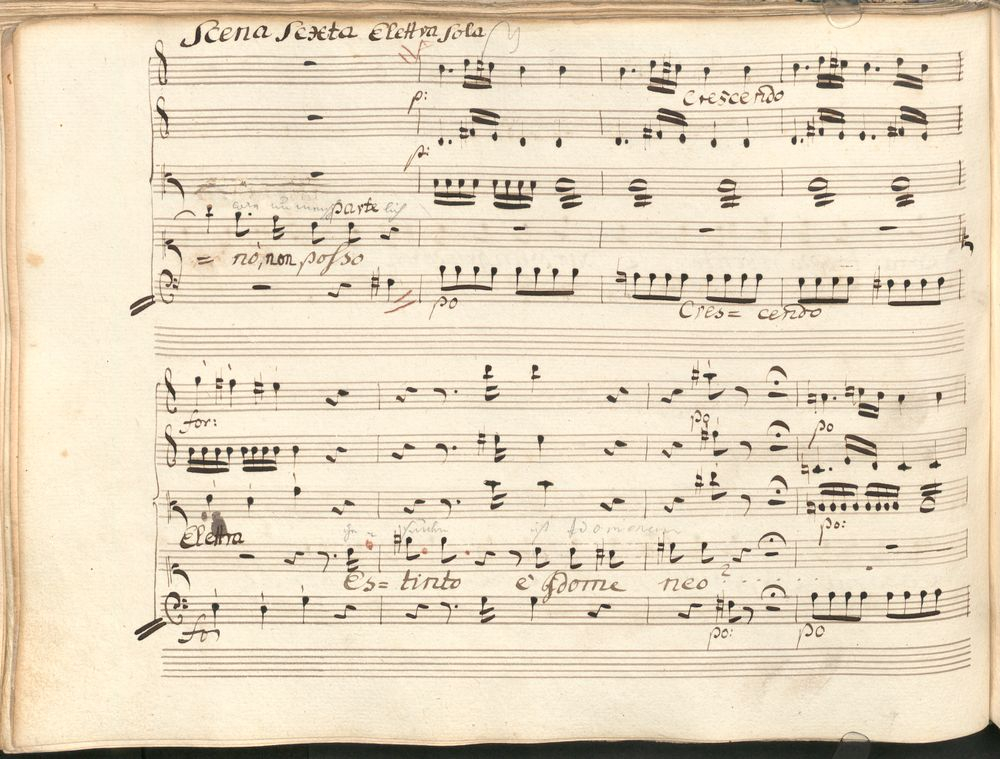 Scena Sexta Elettra sola
p: Crescendo
p:
parte
= nò, non posso
po Cres= cendo
for: po po
po:
Elettra
Es= tinto è Idome neo?
for po: po